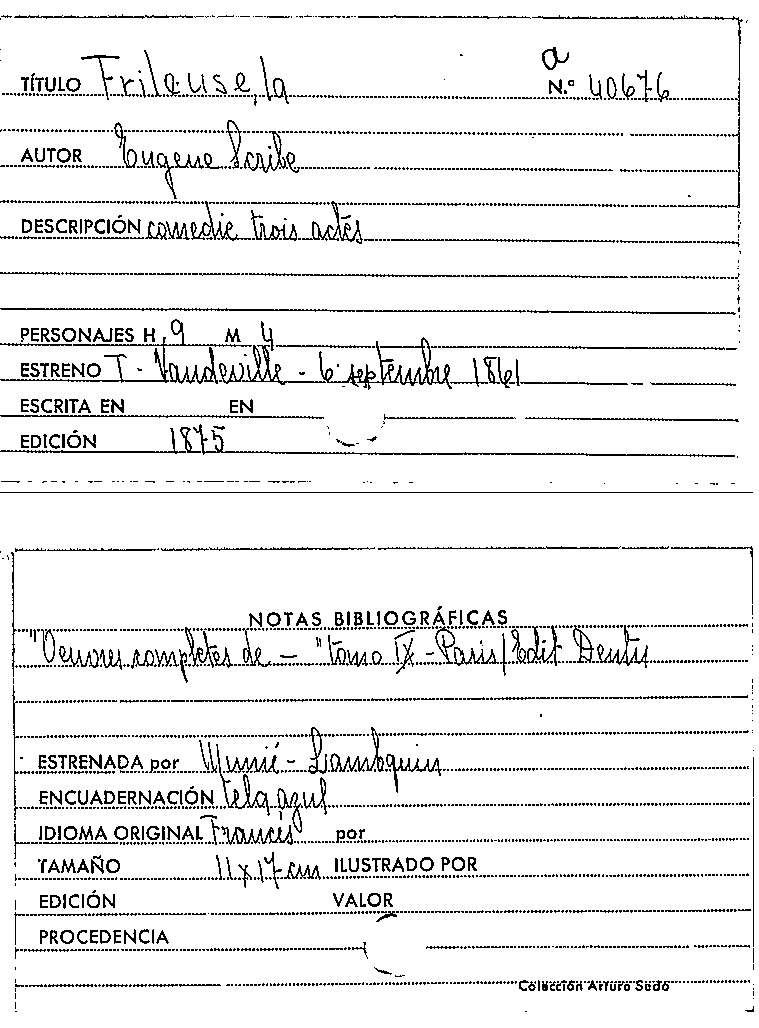 a
TÍTULO Frileuse, la N.º 40676
AUTOR Eugene Scribe
DESCRIPCIÓN comedie trois actes
PERSONAJES H, 9 M 4
ESTRENO T - Vaudeville - 6 septembre 1861
ESCRITA EN EN
EDICIÓN 1875
NOTAS BIBLIOGRÁFICAS
"Oeuvres completes de - " tomo IX - Paris/Edit Dentu
ESTRENADA por Munié - Lambquin
ENCUADERNACIÓN tela azul
IDIOMA ORIGINAL Francés por
TAMAÑO 11 x 17 cm ILUSTRADO POR
EDICIÓN VALOR
PROCEDENCIA
Colección Arturo Sedó